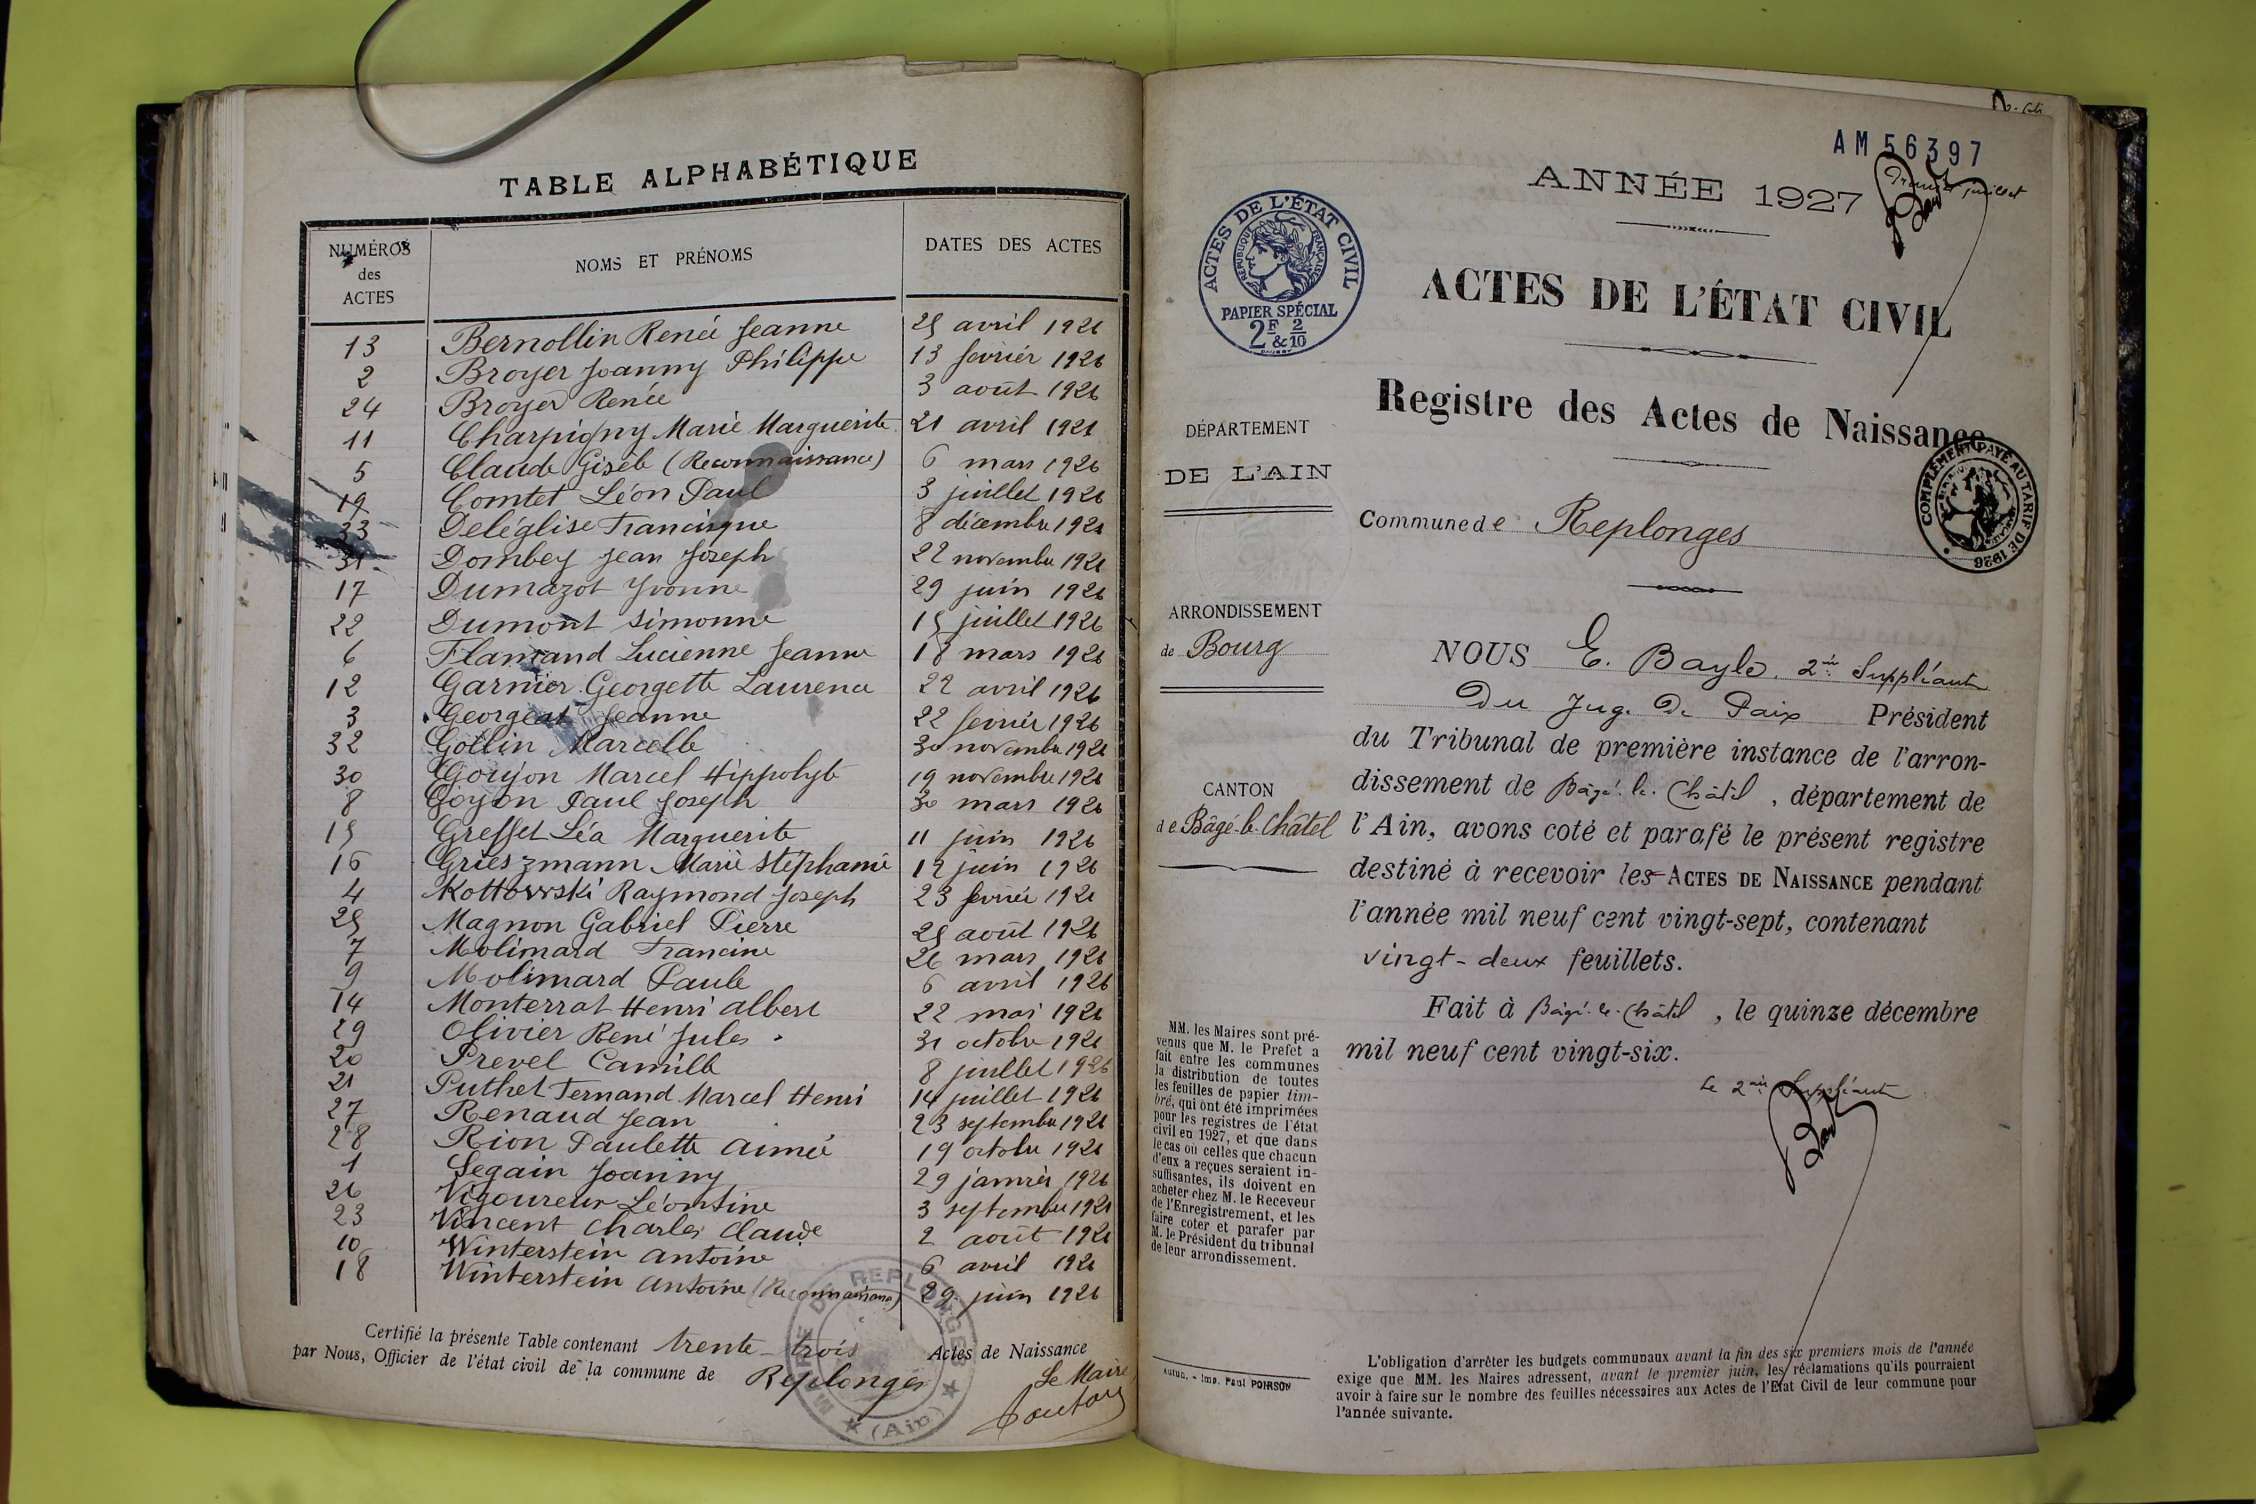 TABLE ALPHABÉTIQUE
NUMÉROS des ACTES
NOMS ET PRÉNOMS
DATES DES ACTES
13 Bernollin Renée Jeanne 25 avril 1926
2 Broyer Joanny Philippe 13 février 1926
24 Broyer Renée 3 août 1926
11 Charpigny Marie Marguerite 21 avril 1926
5 Claude Gisèle (Reconnaissance) 6 mars 1926
19 Comtet Léon Paul 3 juillet 1926
33 Deléglise Francisque 8 décembre 1926
31 Dombey Jean Joseph 22 novembre 1926
17 Dumazot Yvonne 29 juin 1926
22 Dumont Simonne 15 juillet 1926
6 Flamand Lucienne Jeanne 18 mars 1926
12 Garnier Georgette Laurence 22 avril 1926
3 Georgeat Jeanne 22 février 1926
32 Gollin Marcelle 30 novembre 1926
30 Goujon Marcel Hippolyte 19 novembre 1926
8 Goyon Paul Joseph 30 mars 1926
15 Greffet Léa Marguerite 11 juin 1926
16 Grieszmann Marie Stéphanie 12 juin 1926
4 Kottowski Raymond Joseph 23 février 1926
25 Magnon Gabriel Pierre 25 août 1926
7 Molimard Francine 26 mars 1926
9 Molimard Paule 6 avril 1926
14 Monterrat Henri Albert 22 mai 1926
29 Olivier René Jules 31 octobre 1926
20 Prevel Camille 8 juillet 1926
21 Puthet Fernand Marcel Henri 14 juillet 1926
27 Renaud Jean 23 septembre 1926
28 Rion Paulette Aimée 19 octobre 1926
1 Segain Joanny 29 janvier 1926
26 Vigoureux Léontine 3 septembre 1926
23 Vincent Charles Claude 2 août 1926
10 Winterstein Antoine 6 avril 1926
18 Winterstein Antoine (Reconnaissance) 29 juin 1926
Certifié la présente Table contenant trente-trois Actes de Naissance
par Nous, Officier de l'état civil de la commune de Replonges
Le Maire
MAIRIE DE REPLONGES
(Ain)
AM 56397
ANNÉE 1927
ACTES DE L'ÉTAT CIVIL
RÉPUBLIQUE FRANÇAISE
PAPIER SPÉCIAL
2F 2/10
&
ACTES DE L'ÉTAT CIVIL
Registre des Actes de Naissance
COMPLÉMENT PAYÉ AU TARIF DE 1926
DÉPARTEMENT
DE L'AIN
Commune de Replonges
ARRONDISSEMENT
de Bourg
CANTON
de Bâgé-le-Châtel
NOUS E. Bayle, 2me Suppléant
Du Jug. De Paix Président
du Tribunal de première instance de l'arron-
dissement de Bâgé-le-Châtel, département de
l'Ain, avons coté et parafé le présent registre
destiné à recevoir les ACTES DE NAISSANCE pendant
l'année mil neuf cent vingt-sept, contenant
vingt-deux feuillets.
Fait à Bâgé-le-Châtel, le quinze décembre
mil neuf cent vingt-six.
Le 2me Suppléant
MM. les Maires sont pré-
venus que M. le Préfet a
fait entre les communes
la distribution de toutes
les feuilles de papier tim-
bré, qui ont été imprimées
pour les registres de l'état
civil en 1927, et que dans
le cas où celles que chacun
d'eux a reçues seraient in-
suffisantes, ils doivent en
acheter chez M. le Receveur
de l'Enregistrement, et les
faire coter et parafer par
M. le Président du tribunal
de leur arrondissement.
Autun. - Imp. Paul POIRSON
L'obligation d'arrêter les budgets communaux avant la fin des six premiers mois de l'année
exige que MM. les Maires adressent, avant le premier juin, les réclamations qu'ils pourraient
avoir à faire sur le nombre des feuilles nécessaires aux Actes de l'État Civil de leur commune pour
l'année suivante.